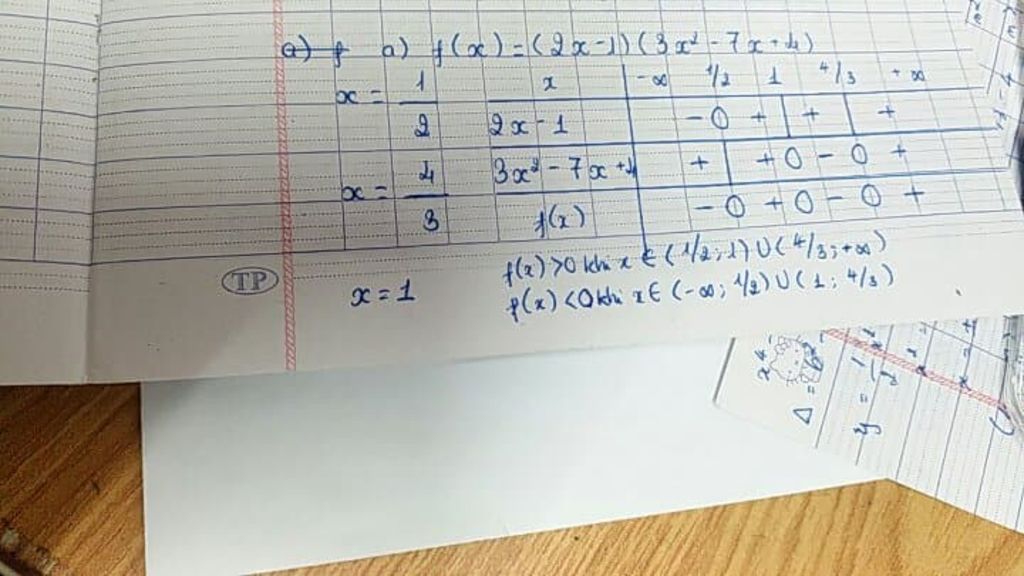 a) f a) f(x) = (2x-1)(3x² - 7x + 4)
x = 1/2
x -∞ 1/2 1 4/3 +∞
2x - 1 - 0 + | + | +
x = 4/3
3x² - 7x + 4 + | + 0 - 0 +
f(x) - 0 + 0 - 0 +
TP
x = 1
f(x) > 0 khi x ∈ (1/2; 1) ∪ (4/3; +∞)
f(x) < 0 khi x ∈ (-∞; 1/2) ∪ (1; 4/3)
Δ =
y =